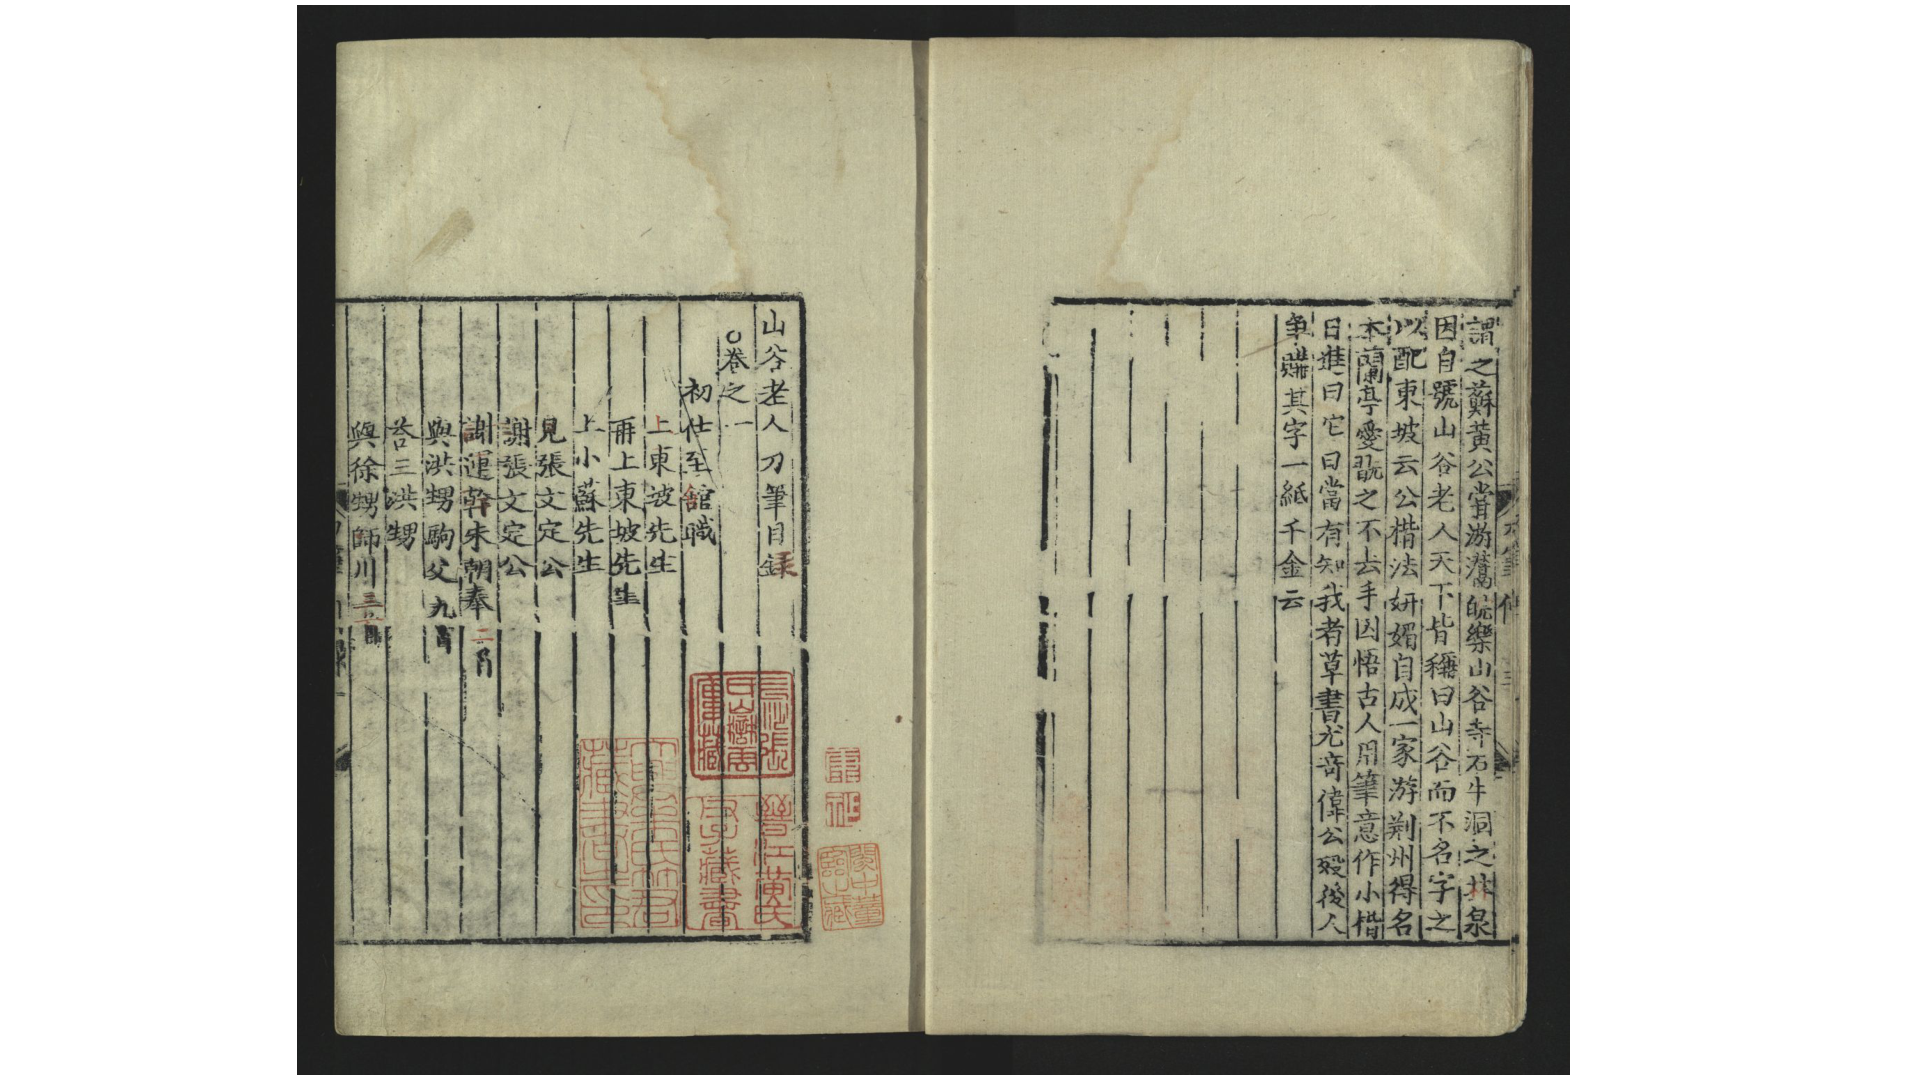 謂之蘇黃公嘗游灊皖樂山谷寺石牛洞之林泉
因自號山谷老人天下皆稱曰山谷而不名字之
以配東坡云公楷法妍媚自成一家游荆州得名
本蘭亭愛翫之不去手因悟古人用筆意作小楷
日進曰它日當有知我者草書尤奇偉公殁後人
爭購其字一紙千金云
山谷老人刀筆目錄
○卷之一
初仕至舘職
上東坡先生
再上東坡先生
上小蘇先生
見張文定公
謝張文定公
謝運幹朱朝奉二首
與洪甥駒父九首
荅三洪甥
與徐甥師川三首
晉江黃氏
父子藏書